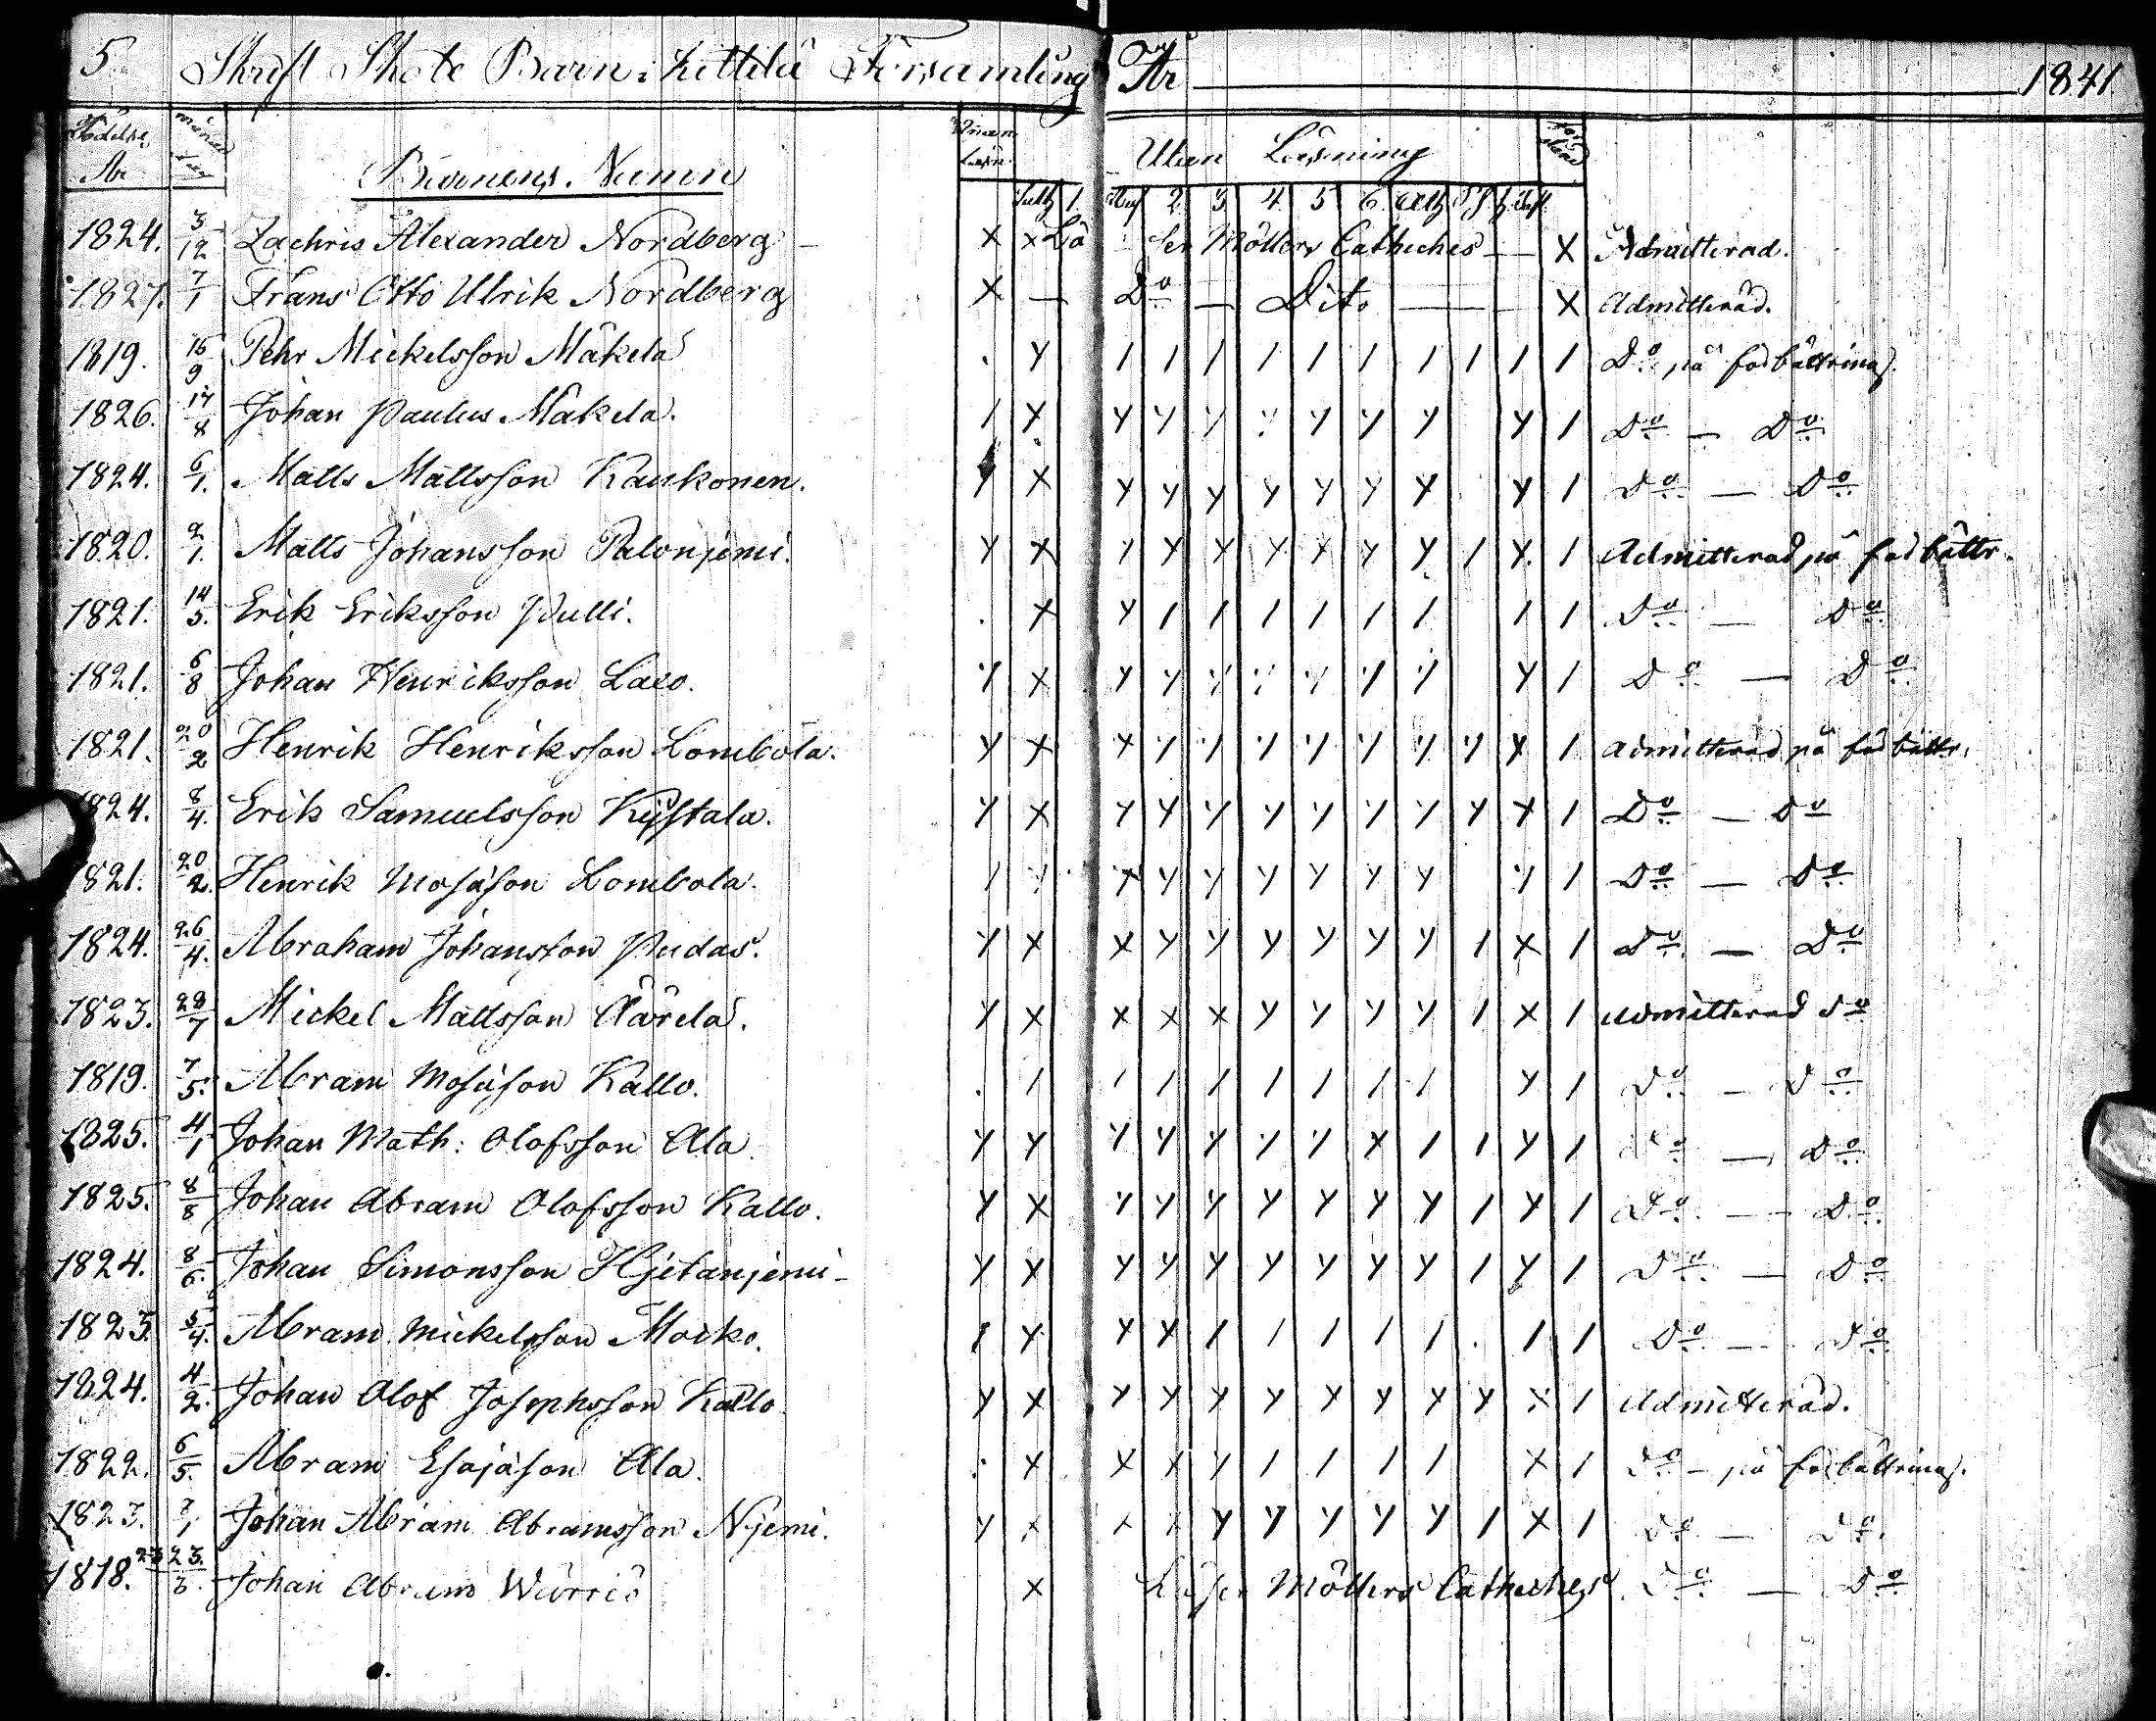 5. Skrift Skole Barn i Kittilä Församling År 1841.
Födelse År månad dag Barnens Namn Innan Läsn. Utan Läsning
1. 2 3 4 5 6
1824. 3/12 Zachris Alexander Nordberg – X X Läser Möllers Catheches — X Admitterad.
1827. 7/1 Frans Otto Ulrik Nordberg X — Do — Dito — X Admitterad.
1819. 16/9 Pehr Mickelsson Mäkelä . Y / / / / / / / / / / Do på förbättring.
1826. 17/8 Johan Paulus Mäkelä. / X Y Y Y Y Y Y Y Y / Do — Do
1824. 6/1. Matts Mattsson Kaukonen. Y X Y Y Y Y Y Y Y Y / Do — Do
1820. 2/1. Matts Johansson Palonjemi. Y X Y X X Y X Y Y / X / Admitterad på förbättr.
1821. 14/5. Erik Eriksson Pulli. . X Y / / / / / / / / Do — Do
1821. 6/8 Johan Henriksson Laxo. Y X Y Y Y Y Y Y Y Y / Do — Do
1821. 20/2 Henrik Henriksson Lombola. Y X X Y Y Y Y Y Y Y X / admitterad på förbättr.
1824. 8/4. Erik Samuelsson Kystala. Y X Y Y Y Y Y Y Y Y X / Do — Do
1821. 20/2. Henrik Mosäson Lombola. / Y X Y Y Y Y Y Y Y / Do — Do
1824. 26/4. Abraham Johansson Pudas. Y X X Y Y Y Y Y Y / X / Do — Do
1823. 28/7 Mickel Mattsson Äärelä. Y X X X X Y Y Y Y / X / admitterad Do
1819. 7/5. Abram Mosäson Kallo. . / / / / / / / / Y / Do — Do
1825. 4/1 Johan Math: Olofsson Ala. Y Y Y Y Y Y Y X / / Y / Do — Do
1825. 8/8 Johan Abram Olofsson Kallo. Y X Y Y Y Y Y Y Y / Y / Do — Do
1824. 8/6. Johan Simonsson Hjetanjemi – Y X Y Y Y Y Y Y Y / Y / Do — Do
1823. 5/4. Abram Mickelsson Moiko. / X Y X / / / / / . / / Do — Do
1824. 4/2. Johan Olof Josephsson Kallo Y X Y Y Y Y X Y X Y X / Admitterad.
1822. 6/5. Abram Esajäson Ala. . X X X Y / / / / X / Do – på förbättring.
1823. 7/1 Johan Abram Abramsson Njemi. Y X X X Y Y Y Y Y / X / Do — Do.
1818. 23/3. Johan Abram Wärriö X Läser Möllers Catheches Do — Do